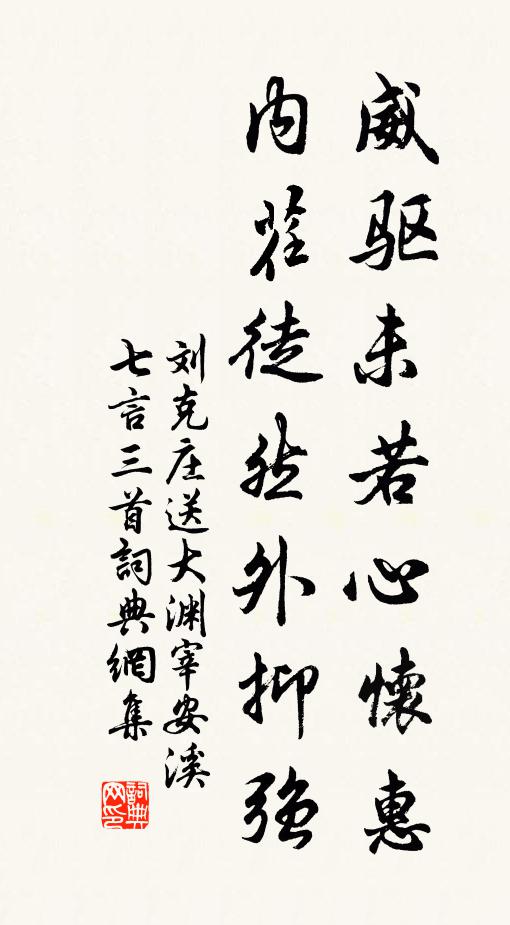 威驱未若心懷惠
内荏徒然外抑强
刘克庄送大渊宰安溪
七言三首詞典網集
詞典网印